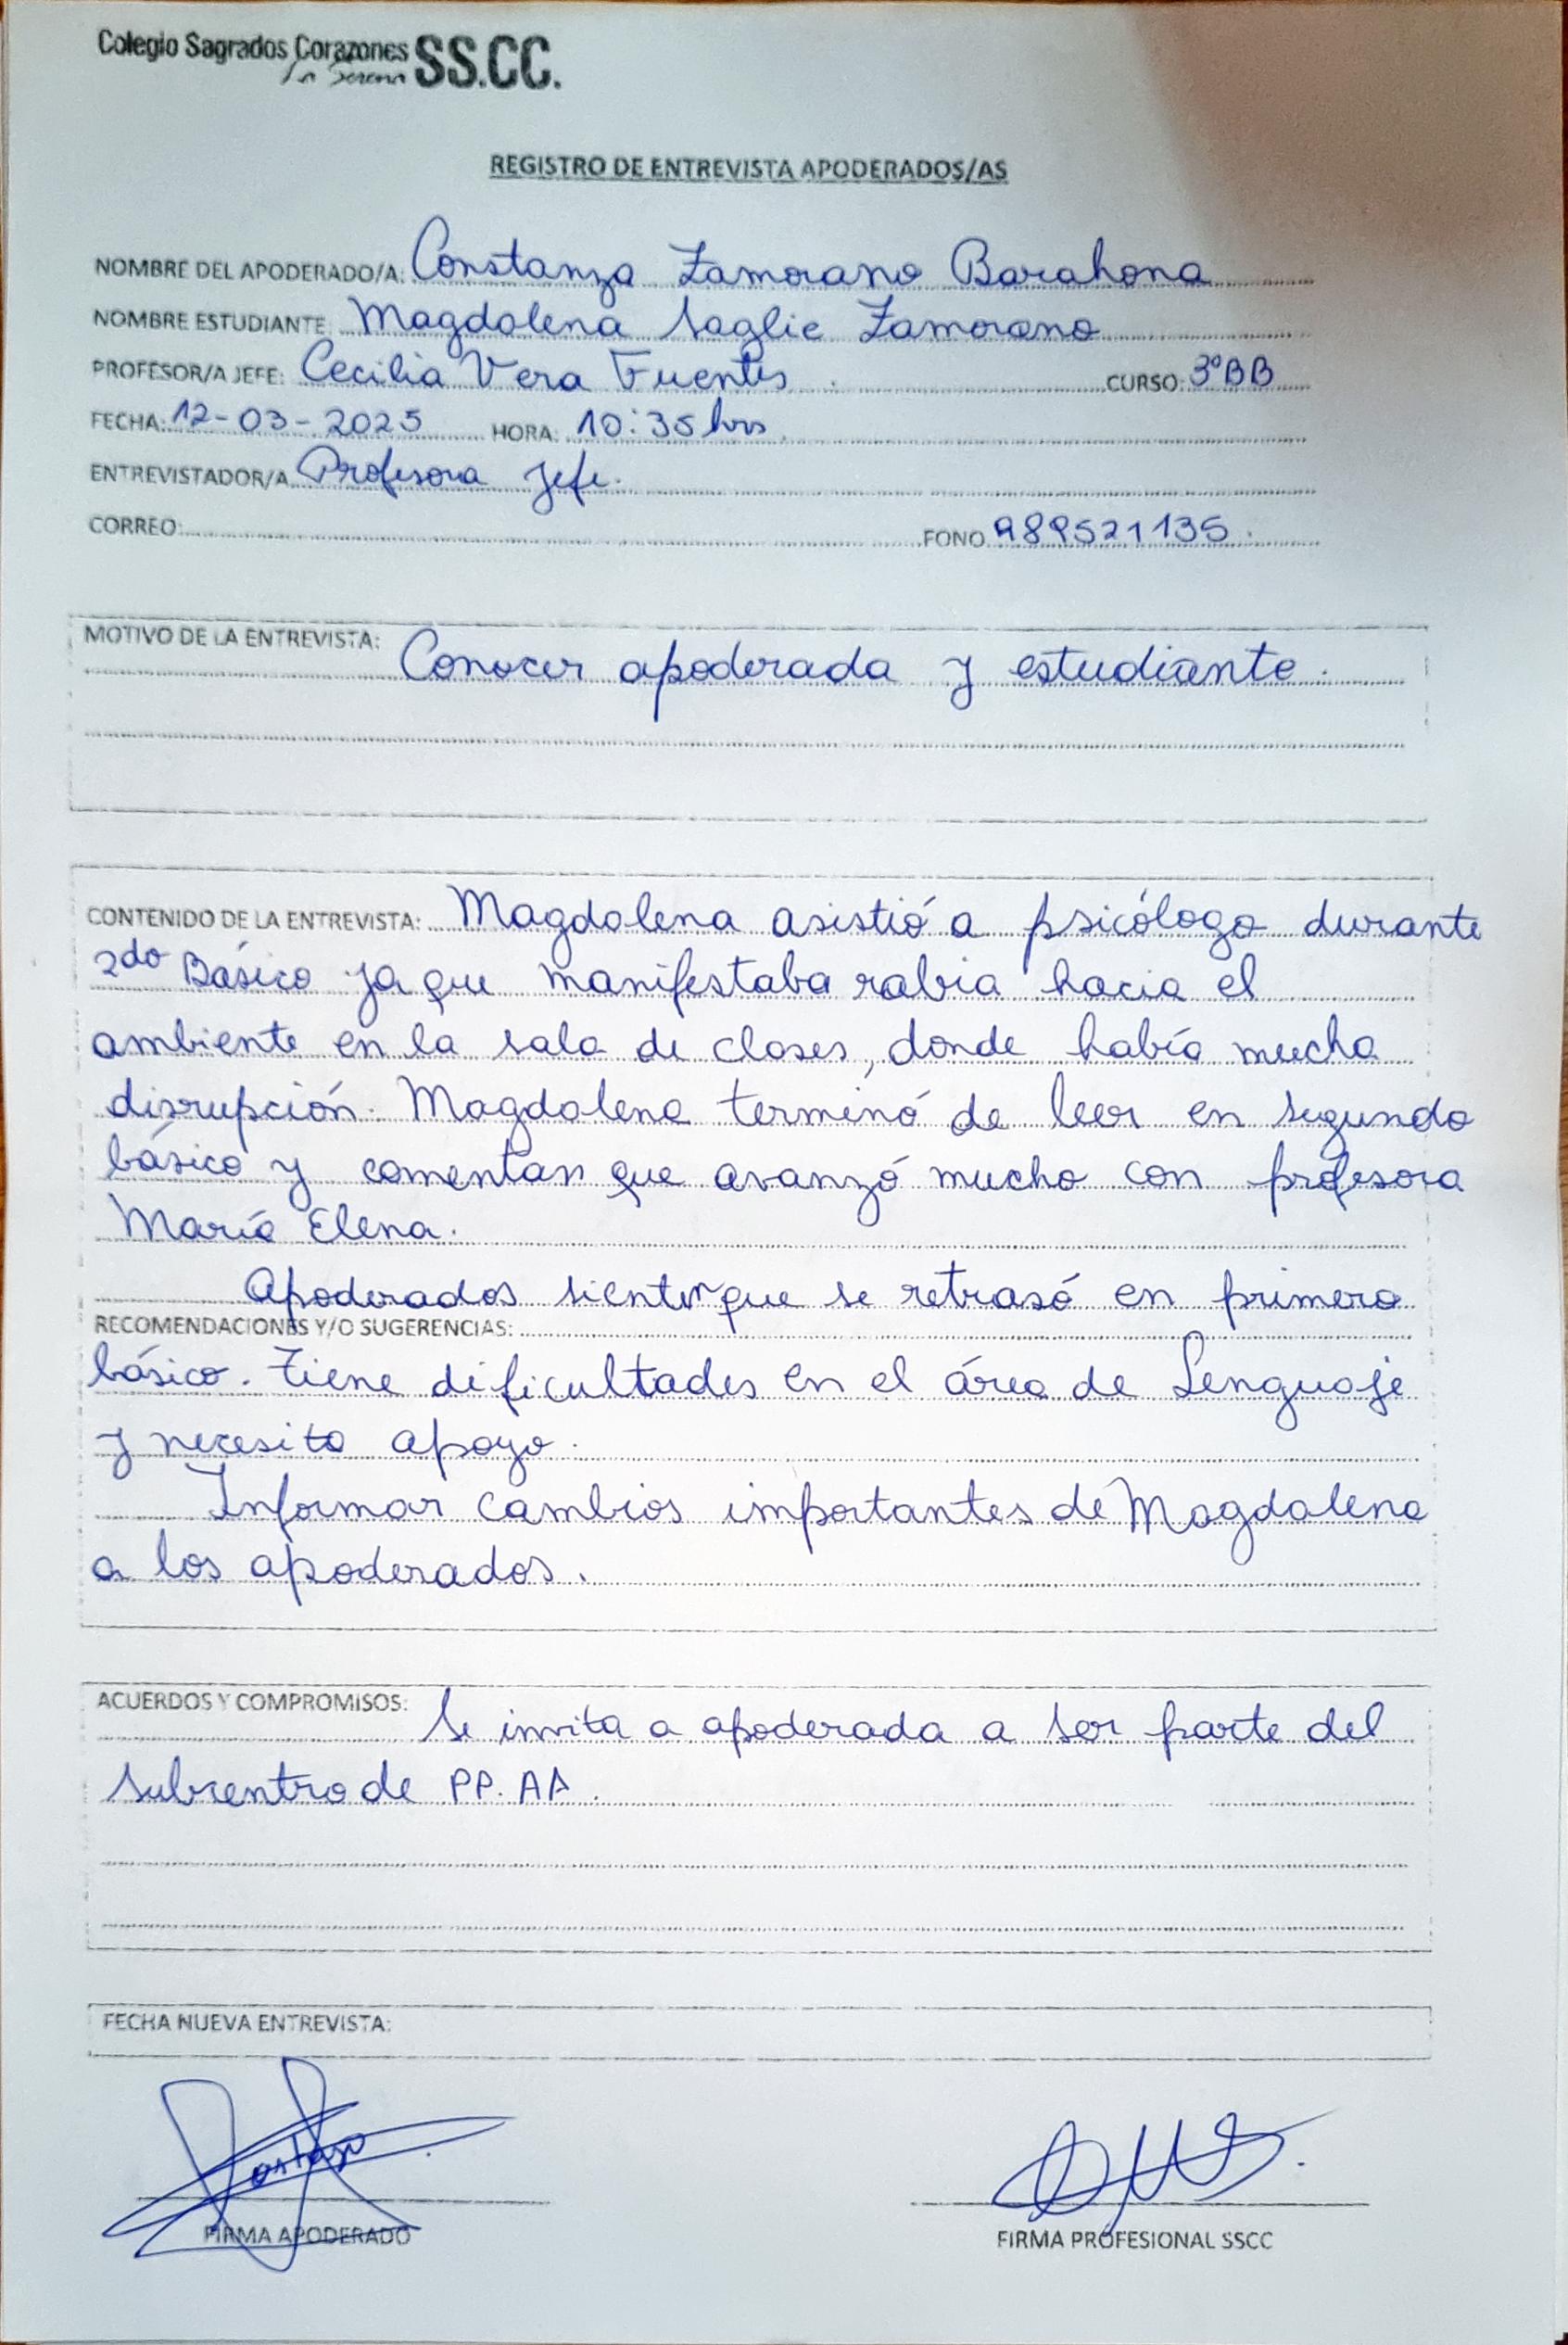 Colegio Sagrados Corazones SS.CC.
La Serena
REGISTRO DE ENTREVISTA APODERADOS/AS
NOMBRE DEL APODERADO/A: Constanza Zamorano Barahona
NOMBRE ESTUDIANTE: Magdalena Saglie Zamorano
PROFESOR/A JEFE: Cecilia Vera Fuentes CURSO: 3°BB
FECHA: 12-03-2025 HORA: 10:35 hrs
ENTREVISTADOR/A Profesora Jefe.
CORREO: FONO 989521135.
MOTIVO DE LA ENTREVISTA: Conocer apoderada y estudiante.
CONTENIDO DE LA ENTREVISTA: Magdalena asistió a psicólogo durante
2do Básico ya que manifestaba rabia hacia el
ambiente en la sala de clases, donde había mucha
disrupción. Magdalena terminó de leer en segundo
básico y comentan que avanzó mucho con profesora
María Elena.
Apoderados sienten que se retrasó en primero
RECOMENDACIONES Y/O SUGERENCIAS:
básico. Tiene dificultades en el área de Lenguaje
y necesita apoyo.
Informar cambios importantes de Magdalena
a los apoderados.
ACUERDOS Y COMPROMISOS: Se invita a apoderada a ser parte del
subcentro de PP.AA.
FECHA NUEVA ENTREVISTA:
FIRMA APODERADO FIRMA PROFESIONAL SSCC